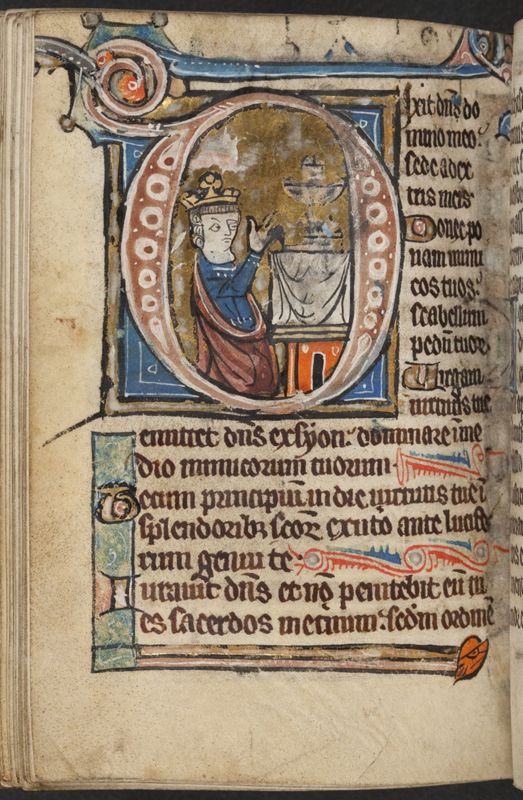 Dixit dn̄s do
mino meo:
sede a dex
tris meis
Donec po
nam inimi
cos tuos:
scabellum
pedū tuoꝝ
Virgam
uirtutis tue
emittet dn̄s exsyon: dominare ime
dio inimicorum tuorum·
Tecum principiū in die uirtutis tue ī
splendoribꝫ scoꝝ ex uto ante lucife
rum genui te:
Iurauit dn̄s et nō penitebit eū tu
es sacerdos in eternum: scdm ordinē